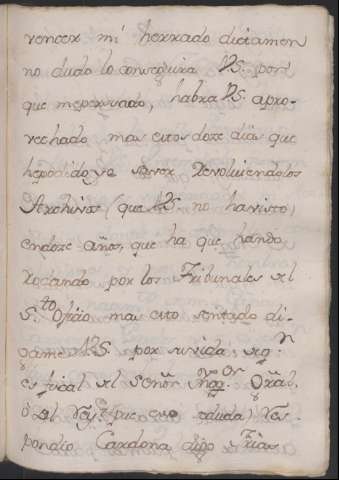 vencer mi herrado dictamen
no dudo lo conseguira VS. por
que me persuado, habra VS. apro-
vechado mas estos doze dias que
he podido yo señor rebolviendo los
Archivos (que VS. no ha visto)
en doze años, que ha que hando
rodando por los Tribunales del
S.to Ofizio mas esto sentado di-
game VS. por su vida, 
es fiscal del Señor
ò del Rey? que eso duda? res-
pondio Cardona digo